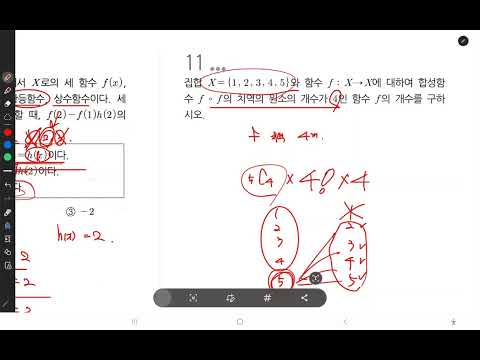 에서 X로의 세 함수 f(x),
항등함수, 상수함수이다. 세
할 때, f(2)-f(1)h(2)의
=h( )이다.
h(2)이다.
다.
③ -2
h(x) = 2 .
2
= 2
11
집합 X={1, 2, 3, 4, 5}와 함수 f : X→X에 대하여 합성함
수 f∘f의 치역의 원소의 개수가 4인 함수 f의 개수를 구하
시오.
5C4 × 4! × 4
1
2 2
3 3
4 4
5 5